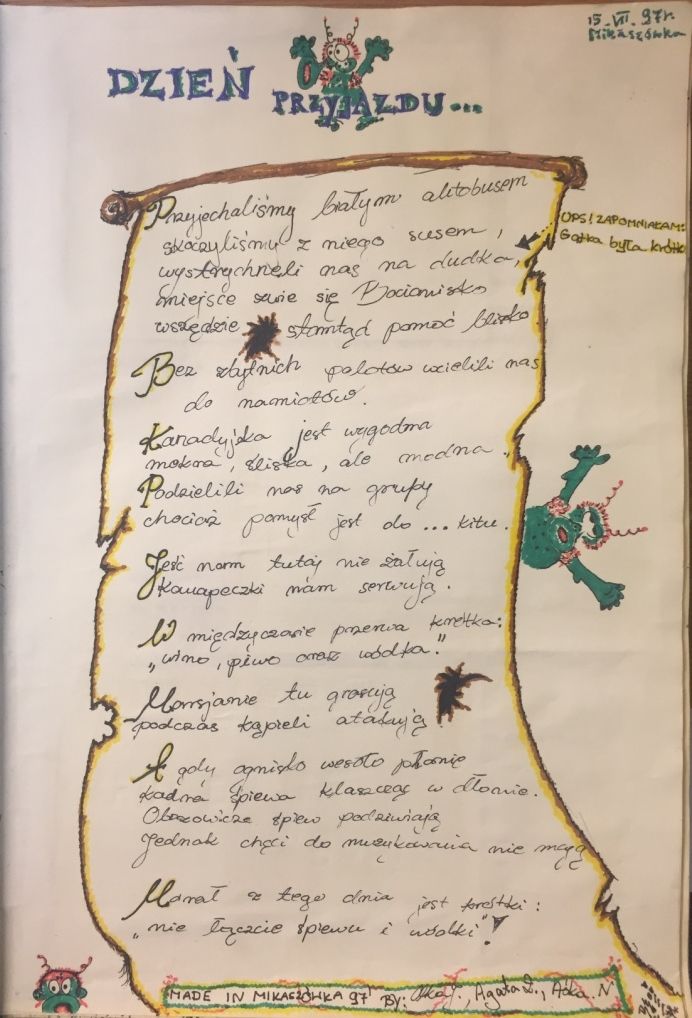 15. VII. 97r.
Mikaszówka
DZIEŃ PRZYJAZDU...
Przyjechaliśmy białym autobusem
skoczyliśmy z niego susem,
wystrychnęli nas na dudka,
UPS! ZAPOMNIAŁAM:
Gatka była krótka
miejsce zwie się Bocianisko
wszędzie stamtąd pomoć blisko
Bez zbytnich palotów wcielili nas
do namiotów.
Kanadyjka jest wygodna
mokra, śliska, ale modna.
Podzielili nas na grupy
chociaż pomysł jest do... kitu.
Jeść nam tutaj nie żałują
Kanapeczki nam serwują.
W międzyczasie przerwa krótka:
"wino, piwo oraz wódka."
Marsjanie tu grasują
podczas kąpieli atakują.
A gdy ognisko wesoło płonie
kadra śpiewa klaszcząc w dłonie.
Obozowicze śpiew podziwiają
Jednak chęci do muzykowania nie mają
Morał z tego dnia jest krótki:
"nie łączcie śpiewu i wódki"!
MADE IN MIKASZÓWKA 97' BY: , Agata Z., Aśka. N